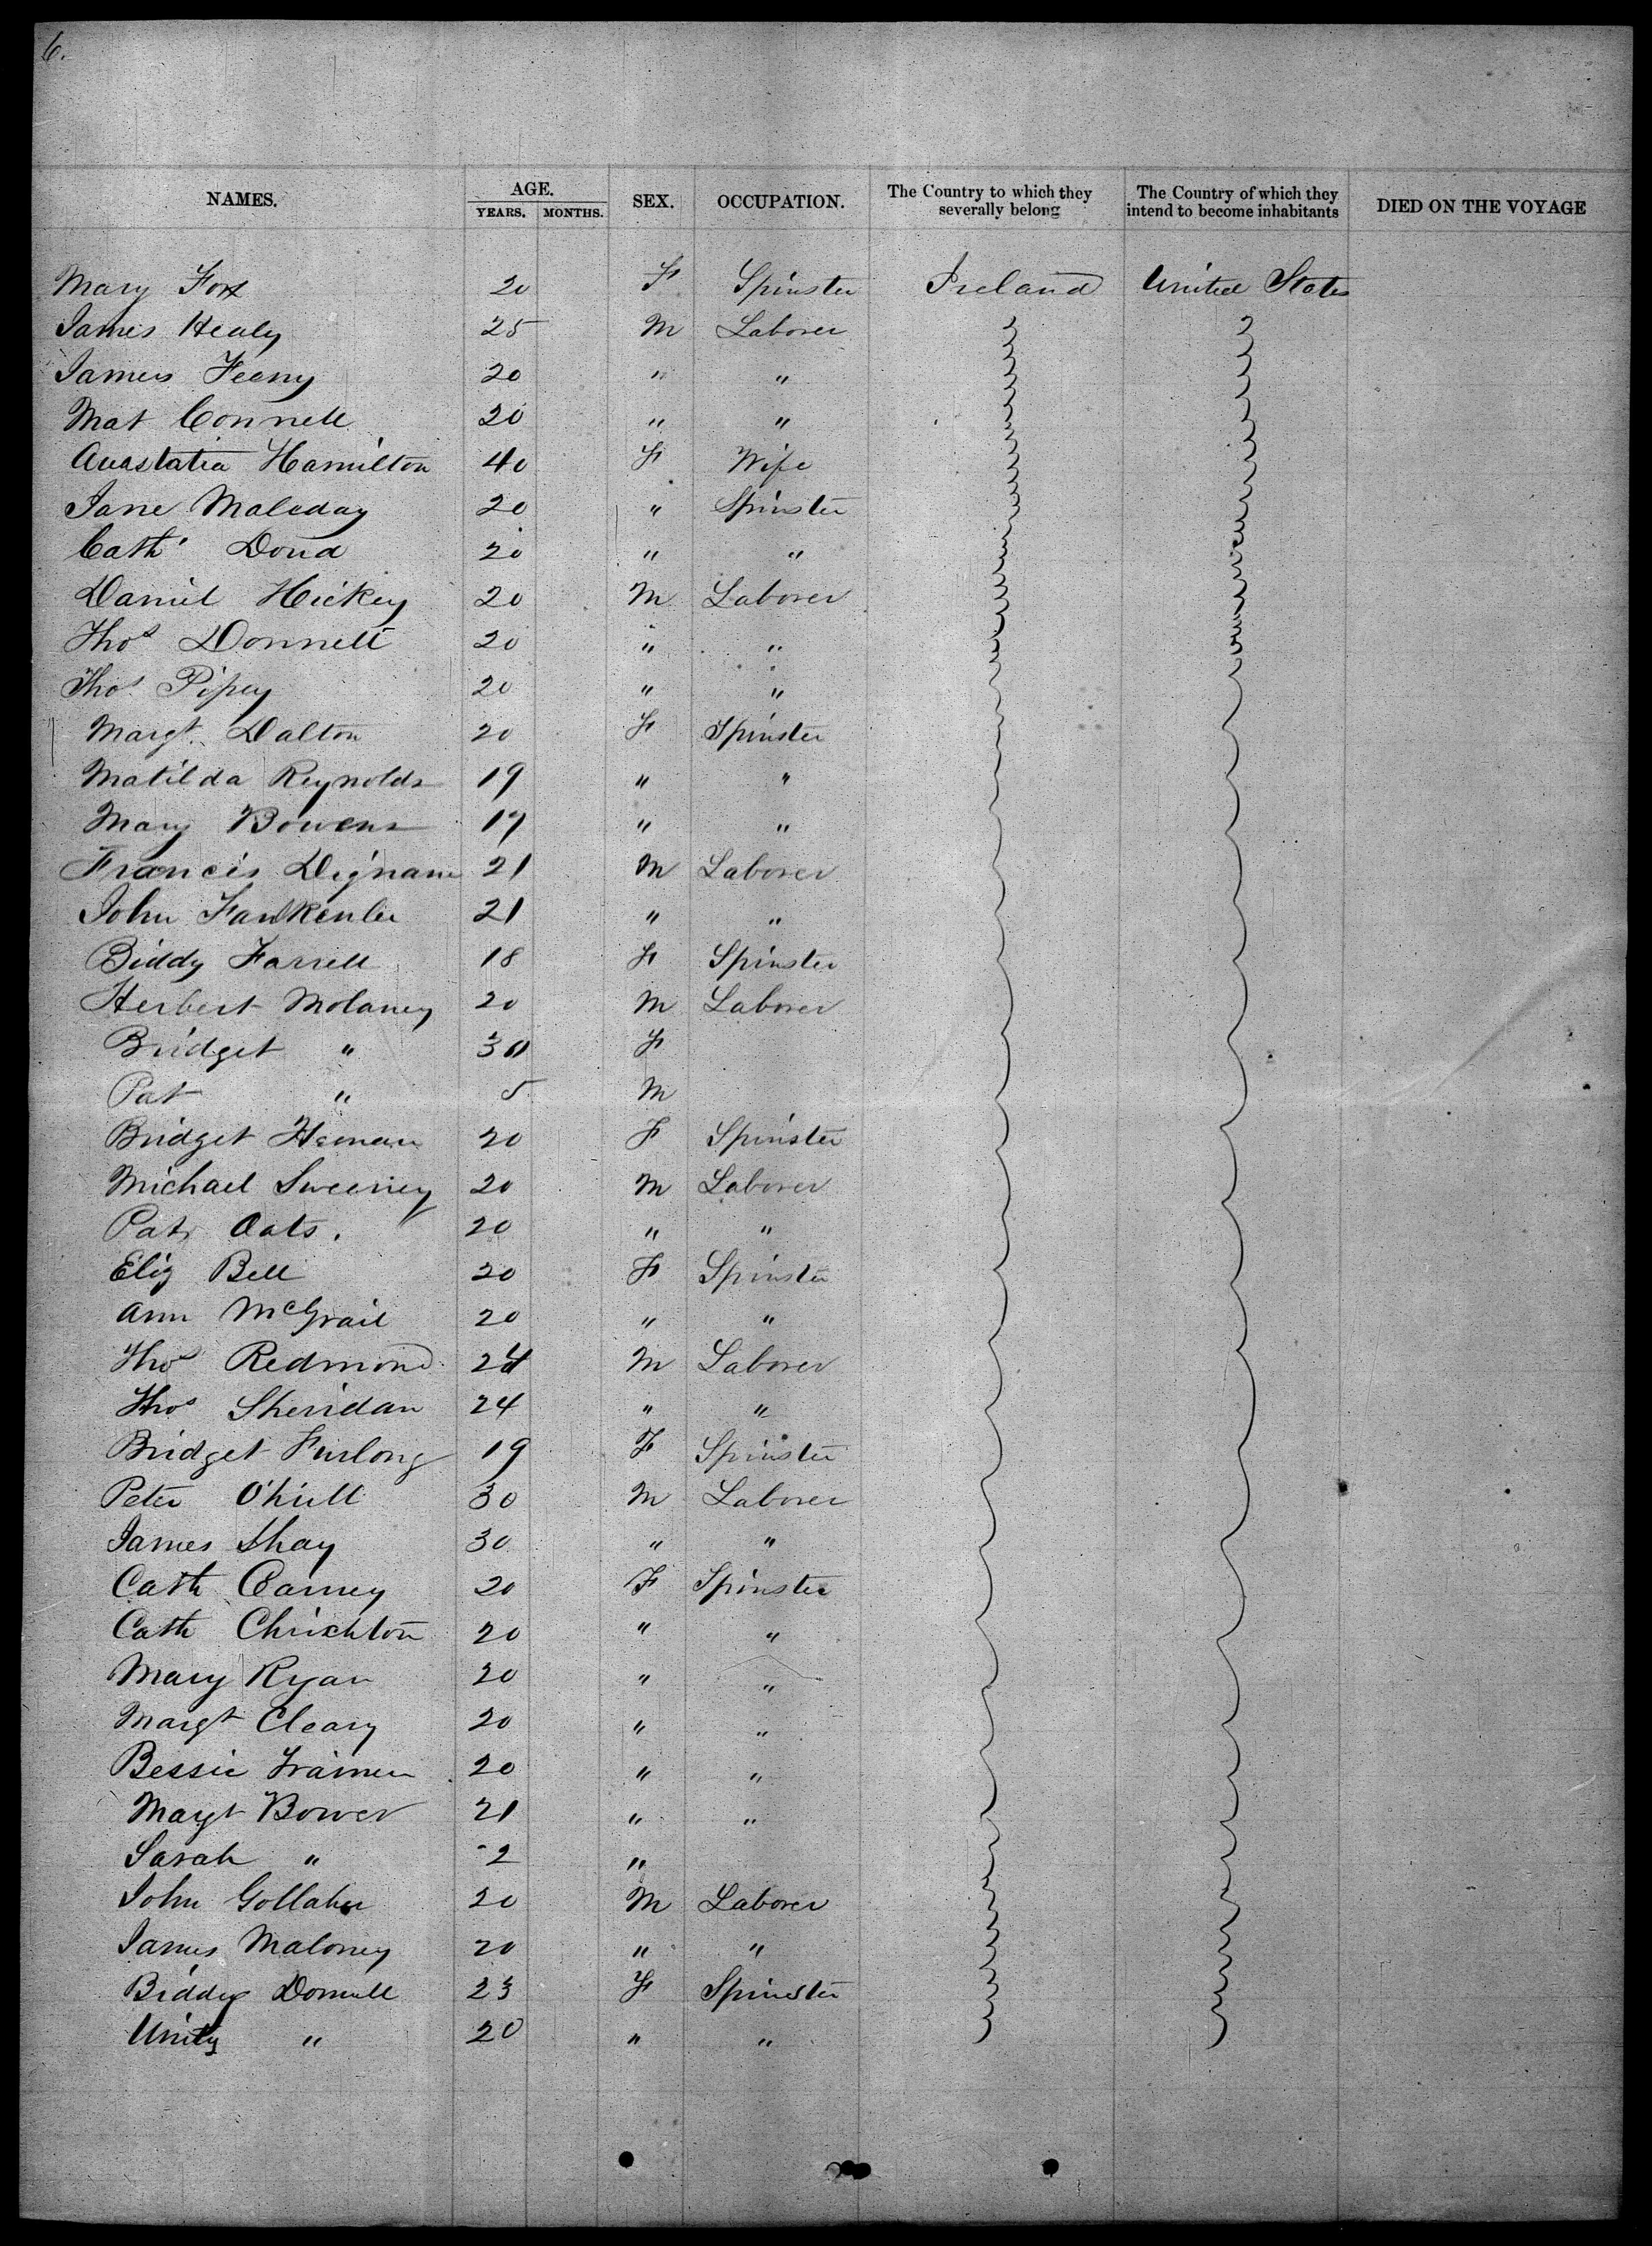 6.
NAMES. AGE. YEARS. MONTHS. SEX. OCCUPATION. The Country to which they severally belong The Country of which they intend to become inhabitants DIED ON THE VOYAGE
Mary Fox 20 F Spinster Ireland United States
James Healy 25 M Laborer
James Feeny 20 " "
Mat Connell 20 " "
Anastatia Hamilton 40 F Wife
Jane Maleday 20 " Spinster
Cath' Doud 20 " "
Daniel Hickey 20 M Laborer
Thos Donnell 20 " "
Thos Pipey 20 " "
Margt. Dalton 20 F Spinster
Matilda Reynolds 19 " "
Mary Bowens 19 " "
Francis Dignam 21 M Laborer
John 21 " "
Biddy Farrell 18 F Spinster
Herbert Molaney 20 M Laborer
Bridget " 30 F
Pat " 5 M
Bridget Heman 20 F Spinster
Michael Sweeney 20 M Laborer
Pat Oats. 20 " "
Eliz Bell 20 F Spinster
Ann McGrail 20 " "
Thos Redmond 24 M Laborer
Thos Sheridan 24 " "
Bridget Furlong 19 F Spinster
Peter O'hill 30 M Laborer
James Shay 30 " "
Cath Carney 20 F Spinster
Cath Chrichton 20 " "
Mary Ryan 20 " "
Margt Cleary 20 " "
Bessie 20 " "
Margt Bower 21 " "
Sarah " 2 "
John Gollaher 20 M Laborer
James Maloney 20 " "
Biddy Donnell 23 F Spinster
Unity " 20 " "